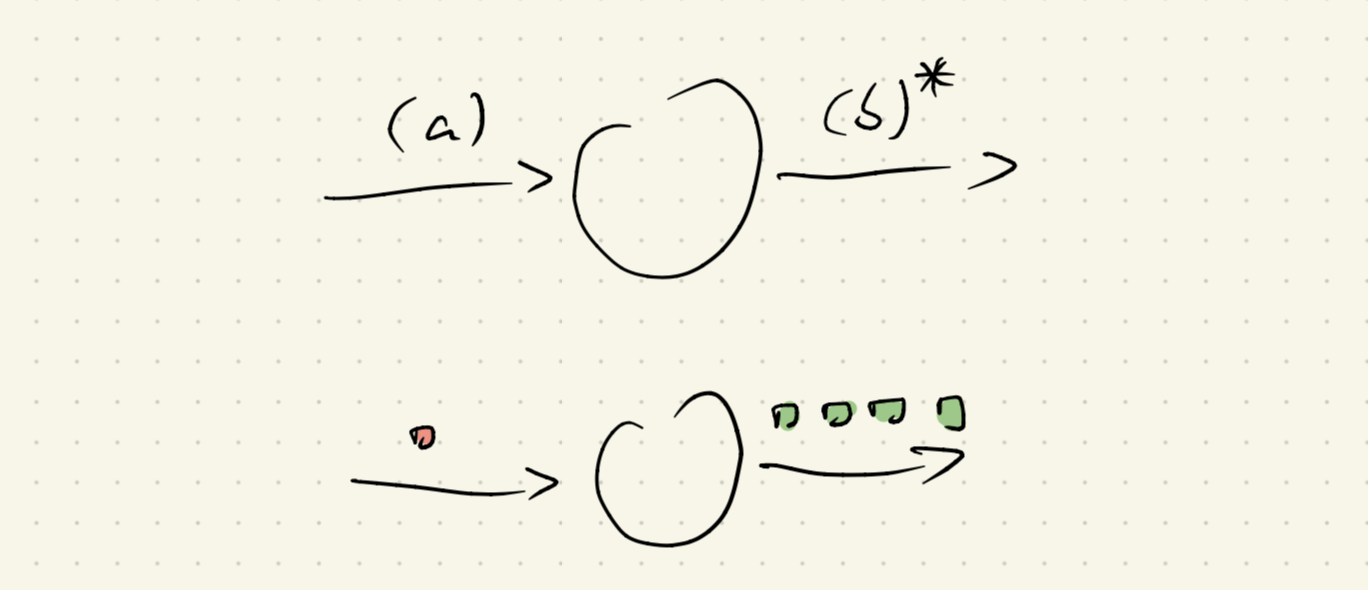 (a) (b)*